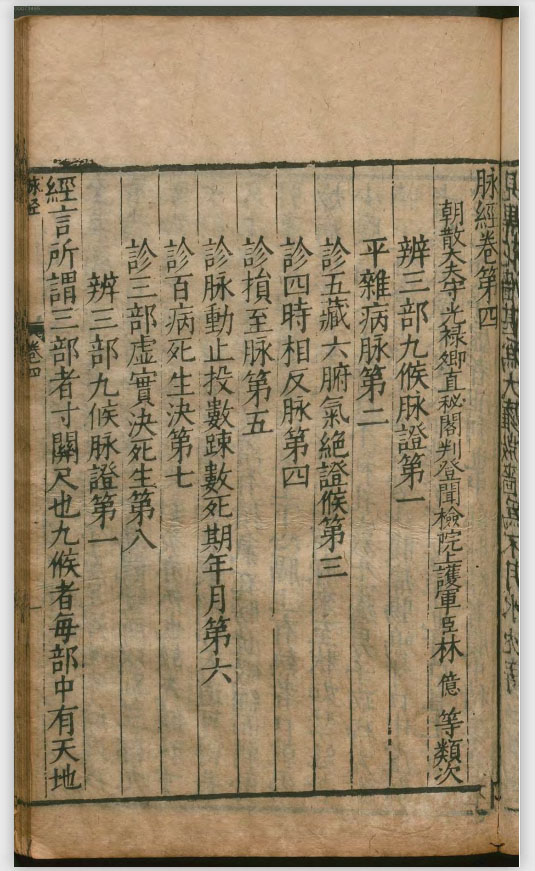 脉經卷第四
朝散大夫守光祿卿直秘閣判登聞檢院上護軍臣林億等類次
辨三部九候脉證第一
平雜病脉第二
診五藏六腑氣絕證候第三
診四時相反脉第四
診損至脉第五
診脉動止投數踈數死期年月第六
診百病死生決第七
診三部虛實決死生第八
辨三部九候脉證第一
經言所謂三部者寸關尺也九候者每部中有天地
脉經
卷四
一